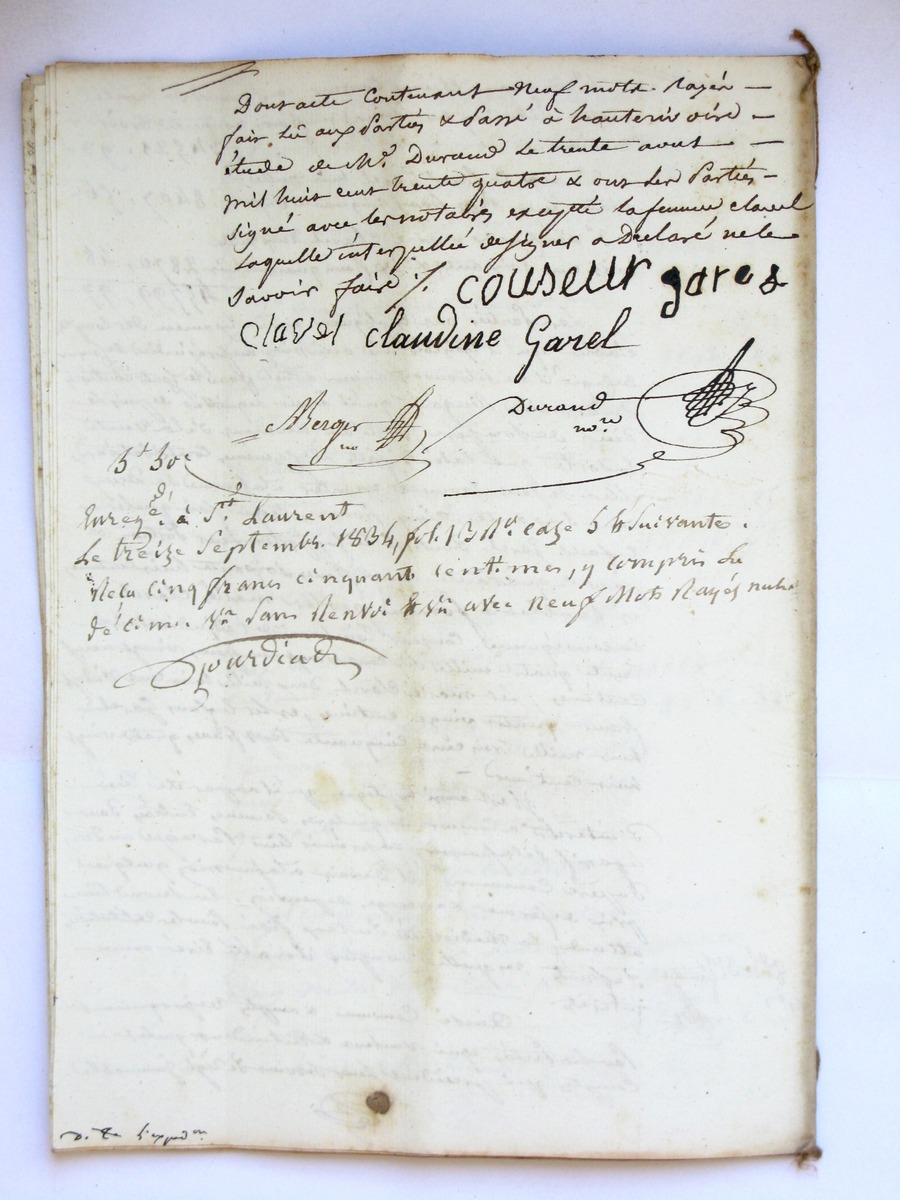 Dont acte Contenant Neuf mots Rayés —
fait Lû aux Parties & Passé à hauterivoire —
étude de Me. Durand Le trente aout —
mil huit cent trente quatre & ont Les Parties —
signé avec les notaires excepté la femme clavel
Laquelle interpellée de signer a Declaré ne le
Savoir faire ./.
couseur garel
clavel claudine Garel
Berger no
Durand nore
5f 50c
Enregé. à St. Laurent
Le treize Septembre 1834, fol. 13 Ro. caze 5 & Suivante.
Reçu cinq francs cinquante centimes, y compris Le
décime. Vu Sans Renvoi & Vu avec neuf Mots Rayés nuls
Gourdiat